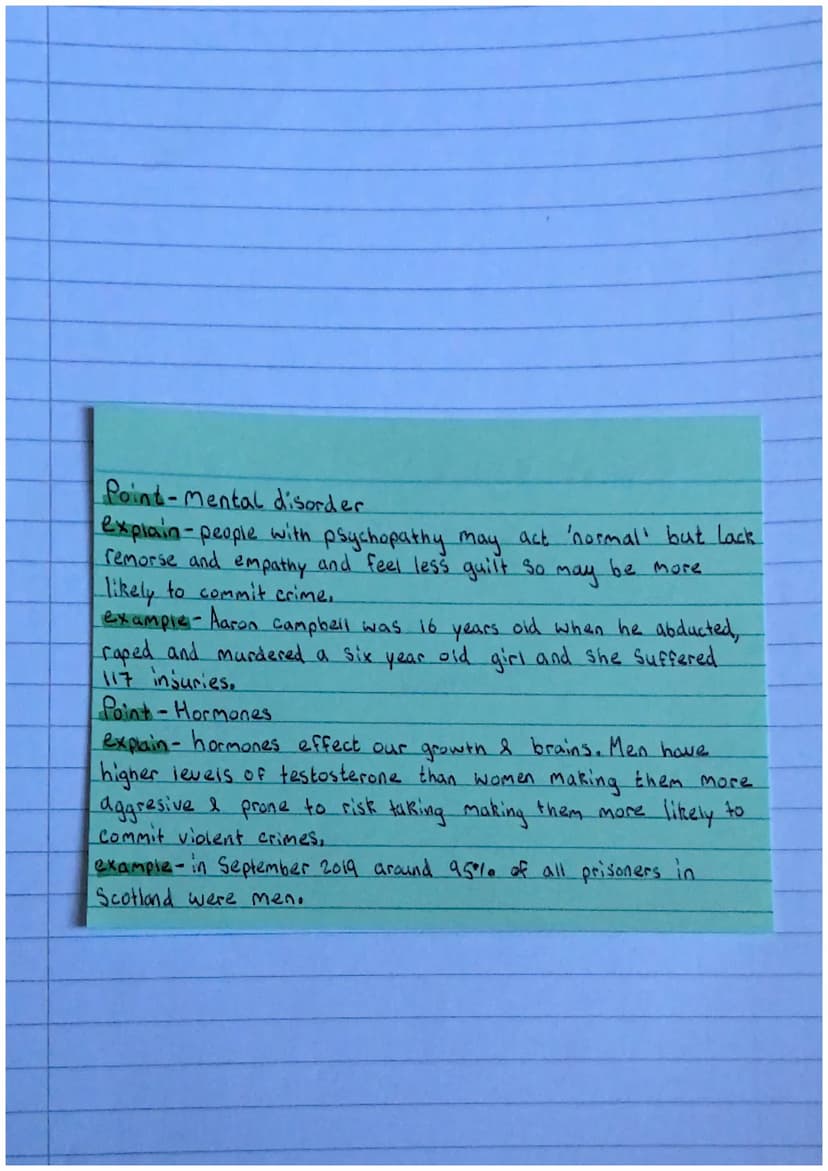 Point - Mental disorder
explain - people with psychopathy may act 'normal' but lack
remorse and empathy and feel less guilt so may be more
likely to commit crime.
example - Aaron Campbell was 16 years old when he abducted,
raped and murdered a six year old girl and she suffered
117 injuries.
Point - Hormones
explain - hormones effect our growth & brains. Men have
higher levels of testosterone than women making them more
aggresive & prone to risk taking making them more likely to
commit violent crimes.
example - in September 2019 around 95% of all prisoners in
Scotland were men.